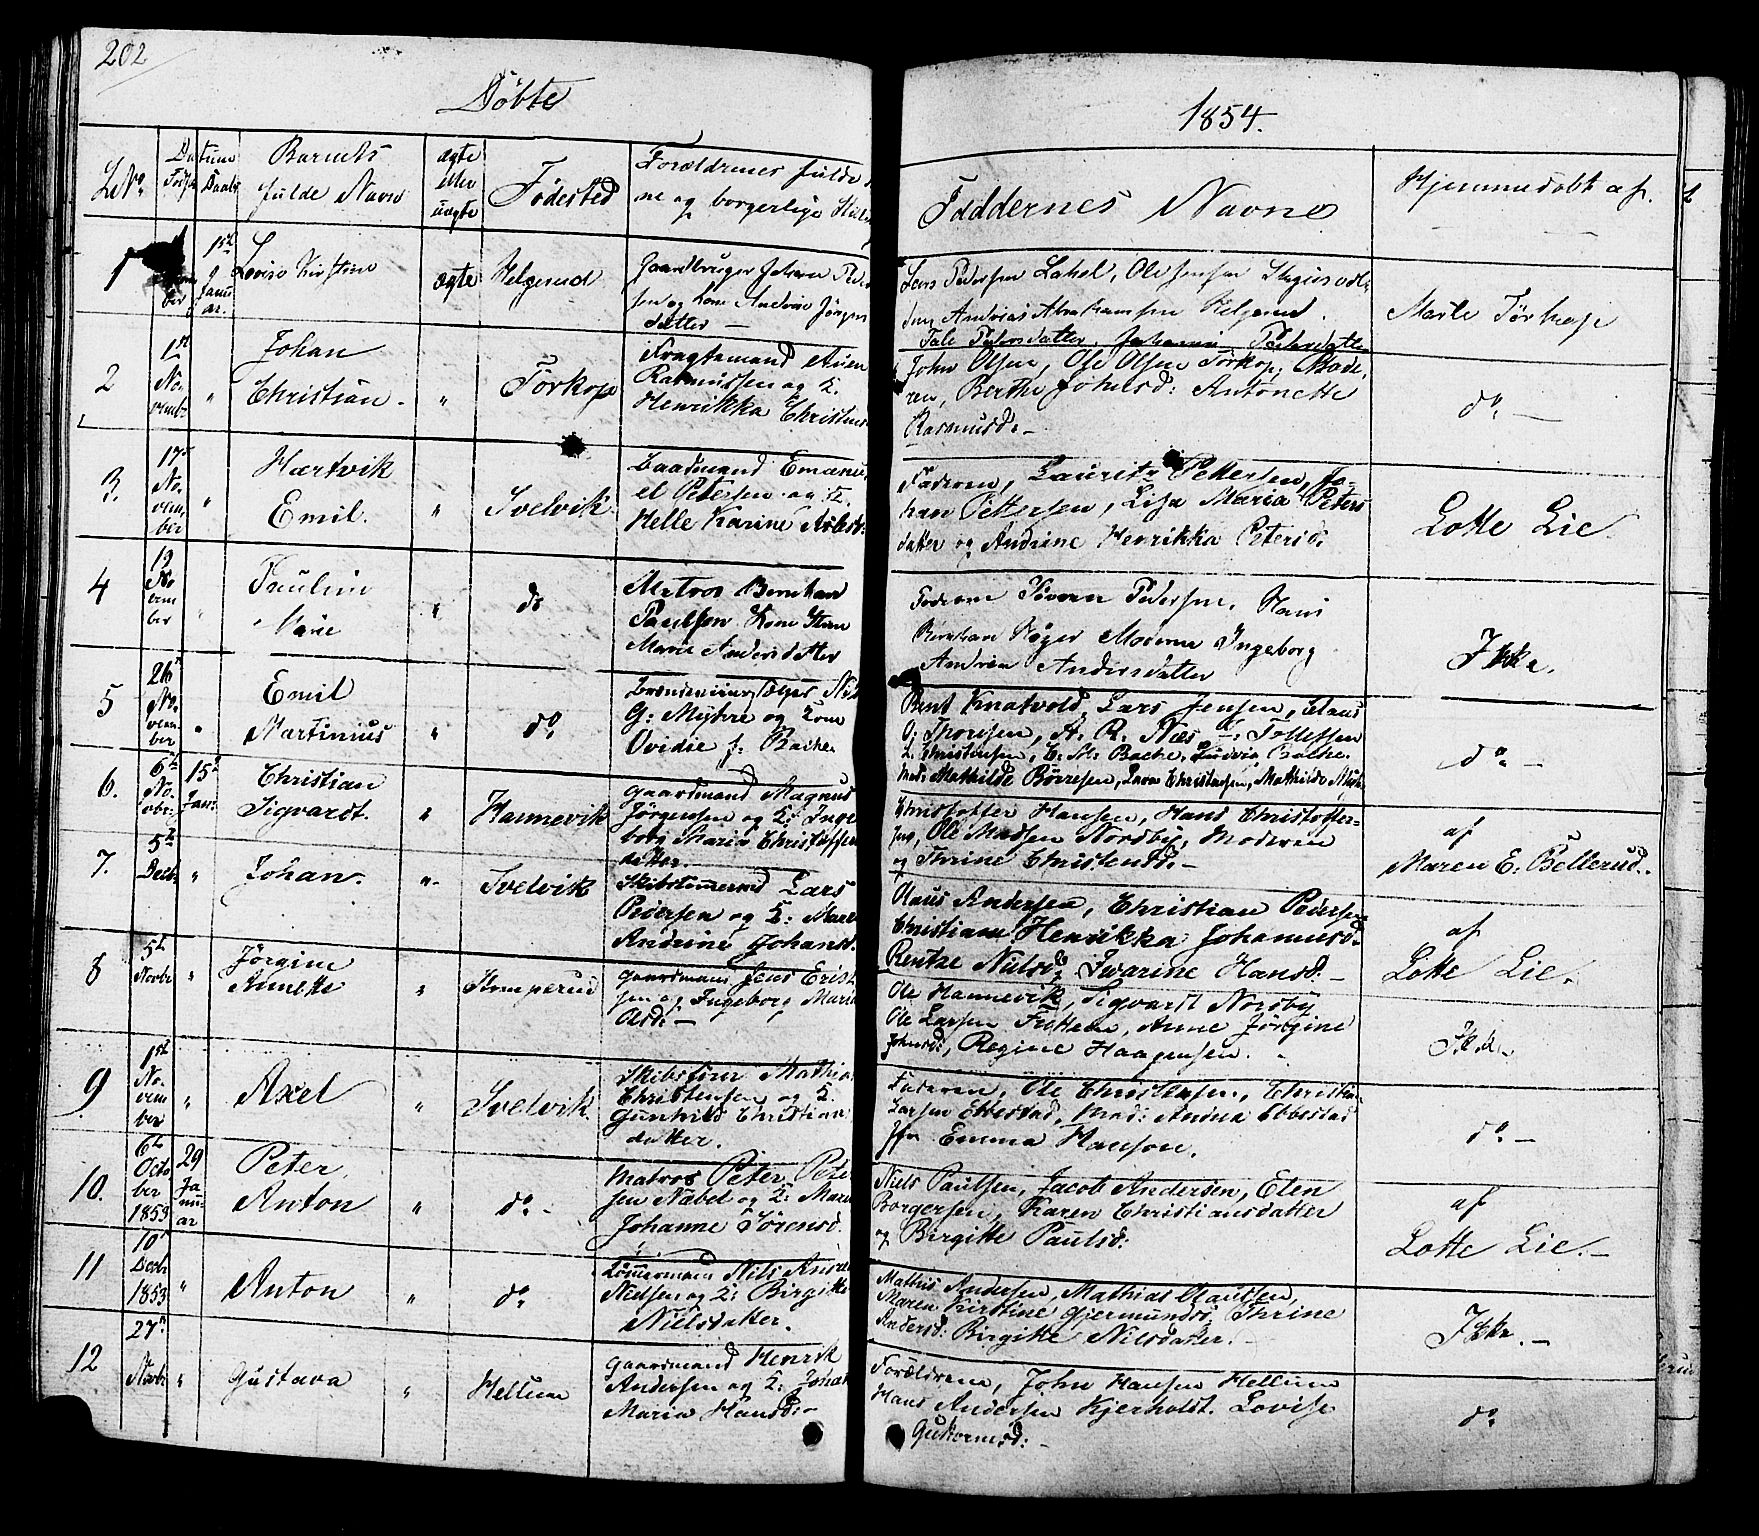 202
Döbte
1854.
LNo.
Datum
Föds. Daab.
Barnets
fulde Navn
ægte
eller
uægte
Födested
Forældrenes fulde
ne og borgerlige
Faddernes Navne
Hjemmedöbt af.
1
1st Januar.
Lovise Kirstine
ægte
Helgerud
Gaardbruger Johan Peder
sen og Kone Andrine Jörgens
datter —
Lars Pedersen Lahel, Ole Jensen
Andreas Abrahamsen Helgerud.
Tale Pedersdatter. Johanne Pedersdatter
Marte Törkop
2
1st
No.
vembr
"
Johan
Christian.
"
Törkop
Fragtemand Auen
Rasmussen og K.
Henrikka Christens
John Olsen, Ole Olsen Törkop,
Berthe Johnsd: Antonette
Rasmusd: -
do —
3.
17de
No.
vem.
ber
"
Hartvik
Emil.
"
Svelvik
Baadmand Emanu
el Petersen og K.
Helle Karine
Faderen, Lauritz Pettersen, Jo-
han Pettersen, Lisa Maria Peters
datter og Andrine Henrikka Petersd:
Lotte Lie.
4
19
No
vem
ber
"
Pauline
Marie
"
do
Matros Bernhard
Paulsen Kone
Marie Andersdatter
Faderen Sören Pedersen, Hans
Bernhard Röger Moderen Ingeborg
Andrea Andersdatter
Ikke.
5
26
No.
vem
ber
"
Emil
Martinius
"
do
G: Myhre og Kone
Ovidie f. Bache.
Bent Knatvold, Lars Jensen, Claus
O: Thorsen, A. R. Næs Tollefsen
L. Christensen, C. M. Bache, Ludvig Bache.
Mathilde Börresen, Lava Christensen, Mathilde
do —
6.
6te
No.
vbr.
15de
Jan:
Christian
Sigvardt.
"
Hannevik
Gaardmand Magnus
Jörgensen og K: Inge
borg Maria Christoffers
datter.
Christoffer Hansen, Hans Christoffer-
sen, Ole Madsen Nordby, Moderen
og Thrine Christensd: -
af
Maren E. Bellerud.
7.
5te
Decbr
"
Johan.
"
Svelvik
Skibstömmermd Lars
Pedersen og K: Maren
Andrine Johansd.
Claus Andersen, Christian Pedersen
Christiane Henrikka Johannisd.
Rentze Nielsd. Swarine Hansd. —
af
Lotte Lie.
8
5te
Novbr
"
Jörgine
Annette
"
Komperud
Gaardmand Jens Erich
sen og Ingeborg Maria
Olsd: —
Ole Hannevik, Sigvardt Nordby
Ole Larsen Anne Jörgine
Johnsd:, Regine Haagensen.
Ikke.
9
1st
No.
vem
ber
"
Axel
"
Svelvik
Skibsförer Mathia
Christensen og K.
Gunhild Christian
datter.
Faderen, Ole Christensen, Christian
Larsen Ebbestad, Mad: Andrea Ebbestad
Jfr. Emma Hanson.
do —
10.
6te
Octo
ber
1853
29
Ja
nu-
ar
Peter
Anton
"
do —
Matros Peter Peter
sen Næbel og K: Maren
Johanne Sörensd.
Niels Paulsen, Jacob Andersen, Eten
Borgersen, Karen Christiansdatter
og Birgitte Paulsd:
af
Lotte Lie. —
11
10de
Decbr
1853
"
Anton
"
do
Tömmermand Nils Andre
Nielsen og K: Birgitte
Nielsdatter.
Mathis Andersen, Mathias Clausen,
Maren Kirstine Gjermunds, Thrine
Andersd: Birgitte Nilsdatter. -
Ikke. —
12
27de
Novbr
"
Gustava
"
Hellum
Gaardmand Henrik
Andersen og K: Johan
Maria Hansd: —
Forældrene, John Hansen Hellum
Hans Andersen Kjerholdt. Lovise
Guttormsd: —
do